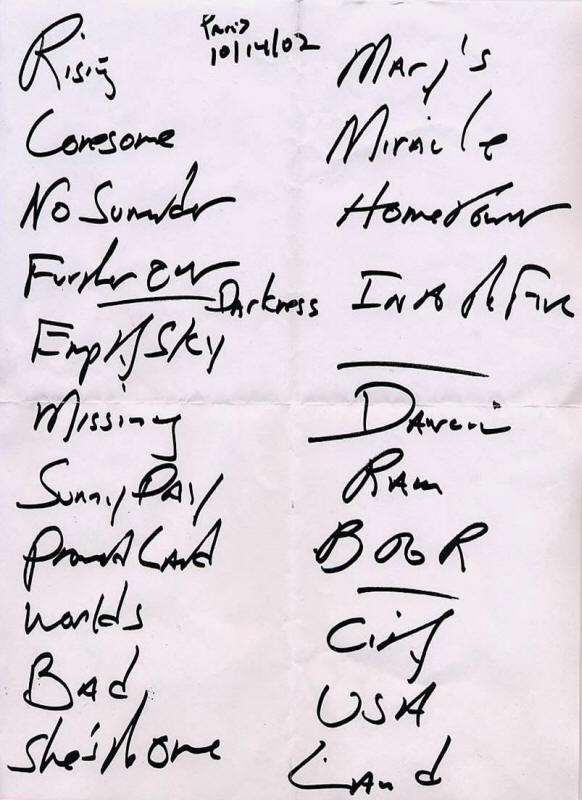 Paris
10/14/02
Rising
Lonesome
No Surrender
Further on
Darkness
Empty Sky
Missing
Sunny Day
Promised Land
Worlds
Bad
She's the One
Mary's
Miracle
Hometown
Into the Fire
Dancin
Ram
BOOR
City
USA
Land